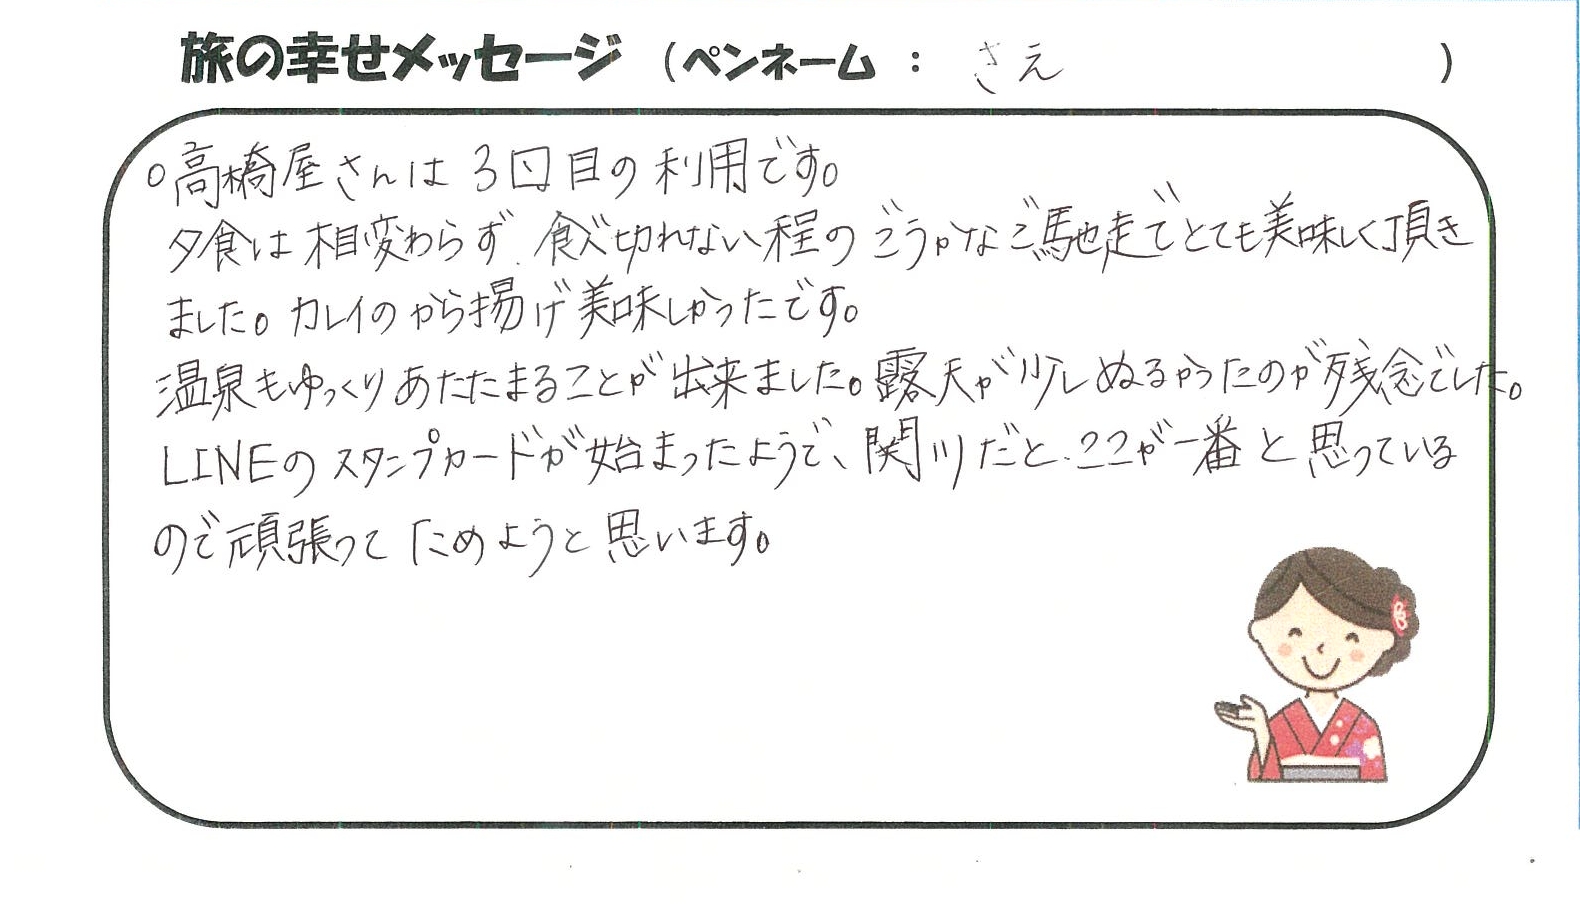 旅の幸せメッセージ （ペンネーム ： さえ ）
○高橋屋さんは3回目の利用です。
夕食は相変わらず、食べ切れない程のごうかなご馳走でとても美味しく頂き
ました。カレイのから揚げ美味しかったです。
温泉もゆっくりあたたまることが出来ました。露天が少しぬるかったのが残念でした。
LINEのスタンプカードが始まったようで、関川だと、ここが一番と思っている
ので頑張ってためようと思います。